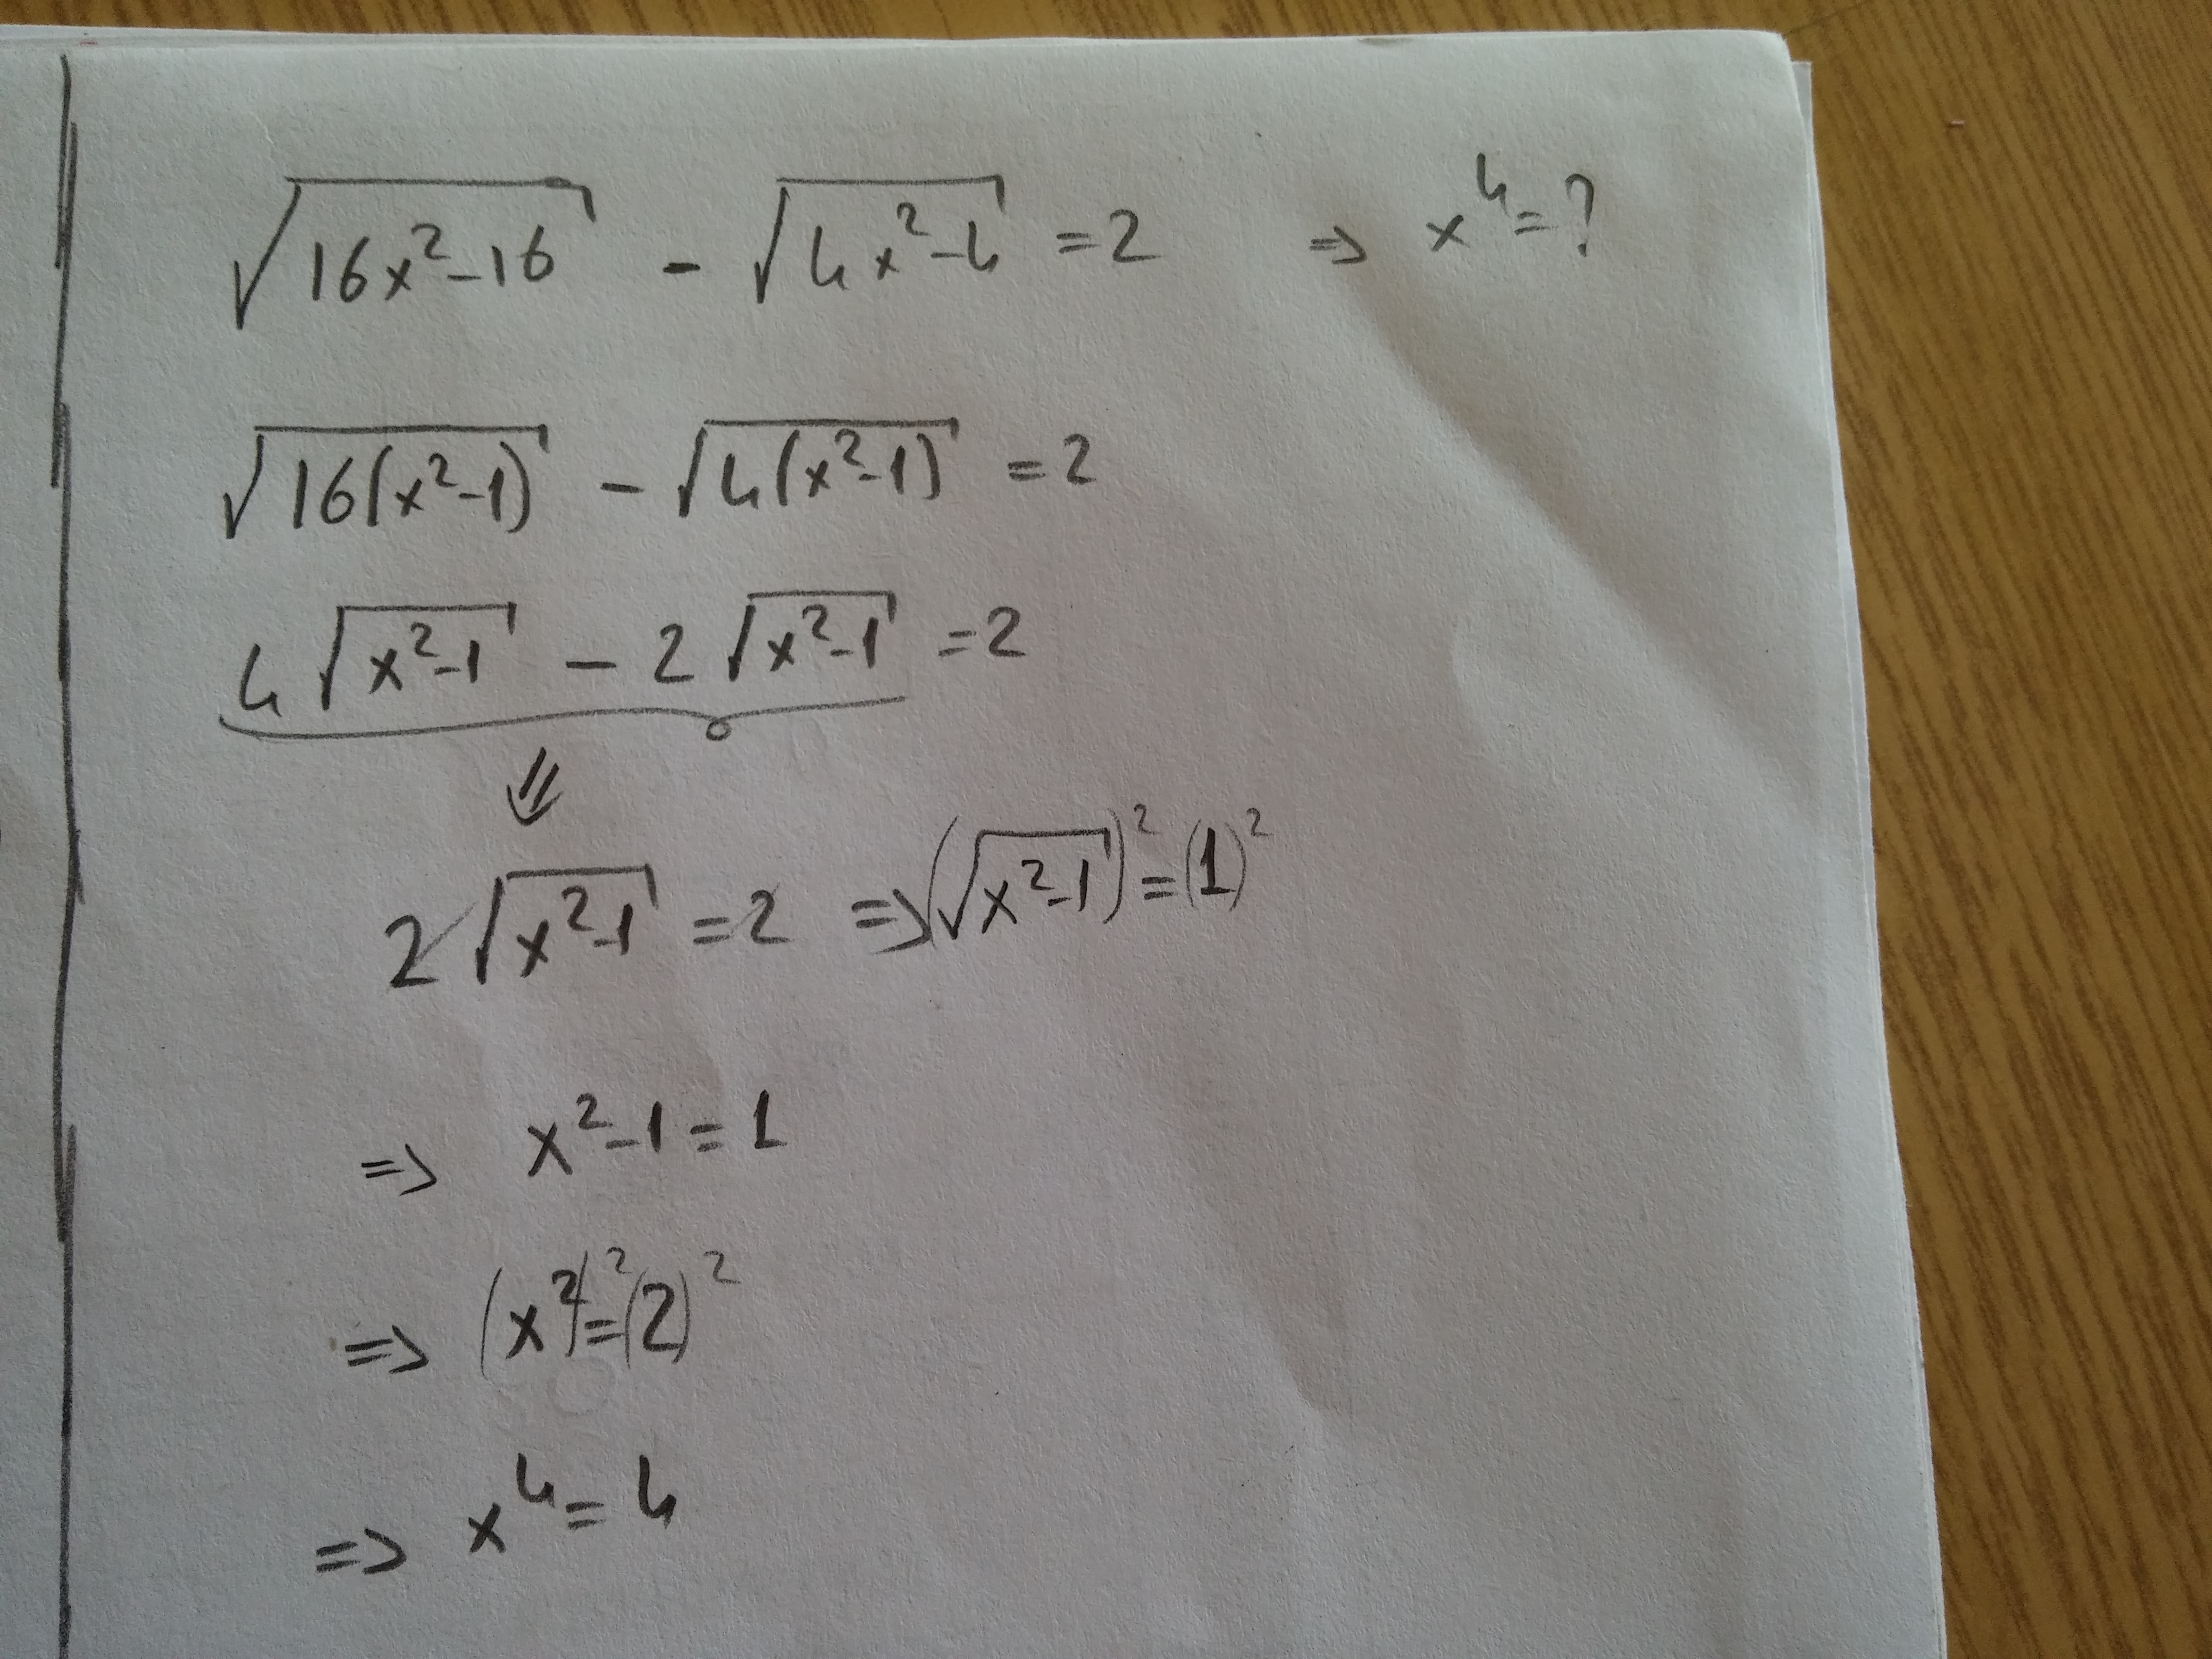 √(16x²-16) - √(4x²-4) = 2 ⇒ x⁴ = ?
√(16(x²-1)) - √(4(x²-1)) = 2
4√(x²-1) - 2√(x²-1) = 2
⇓
2√(x²-1) = 2 ⇒ (√(x²-1))² = (1)²
⇒ x²-1 = 1
⇒ (x²)² = (2)²
⇒ x⁴ = 4